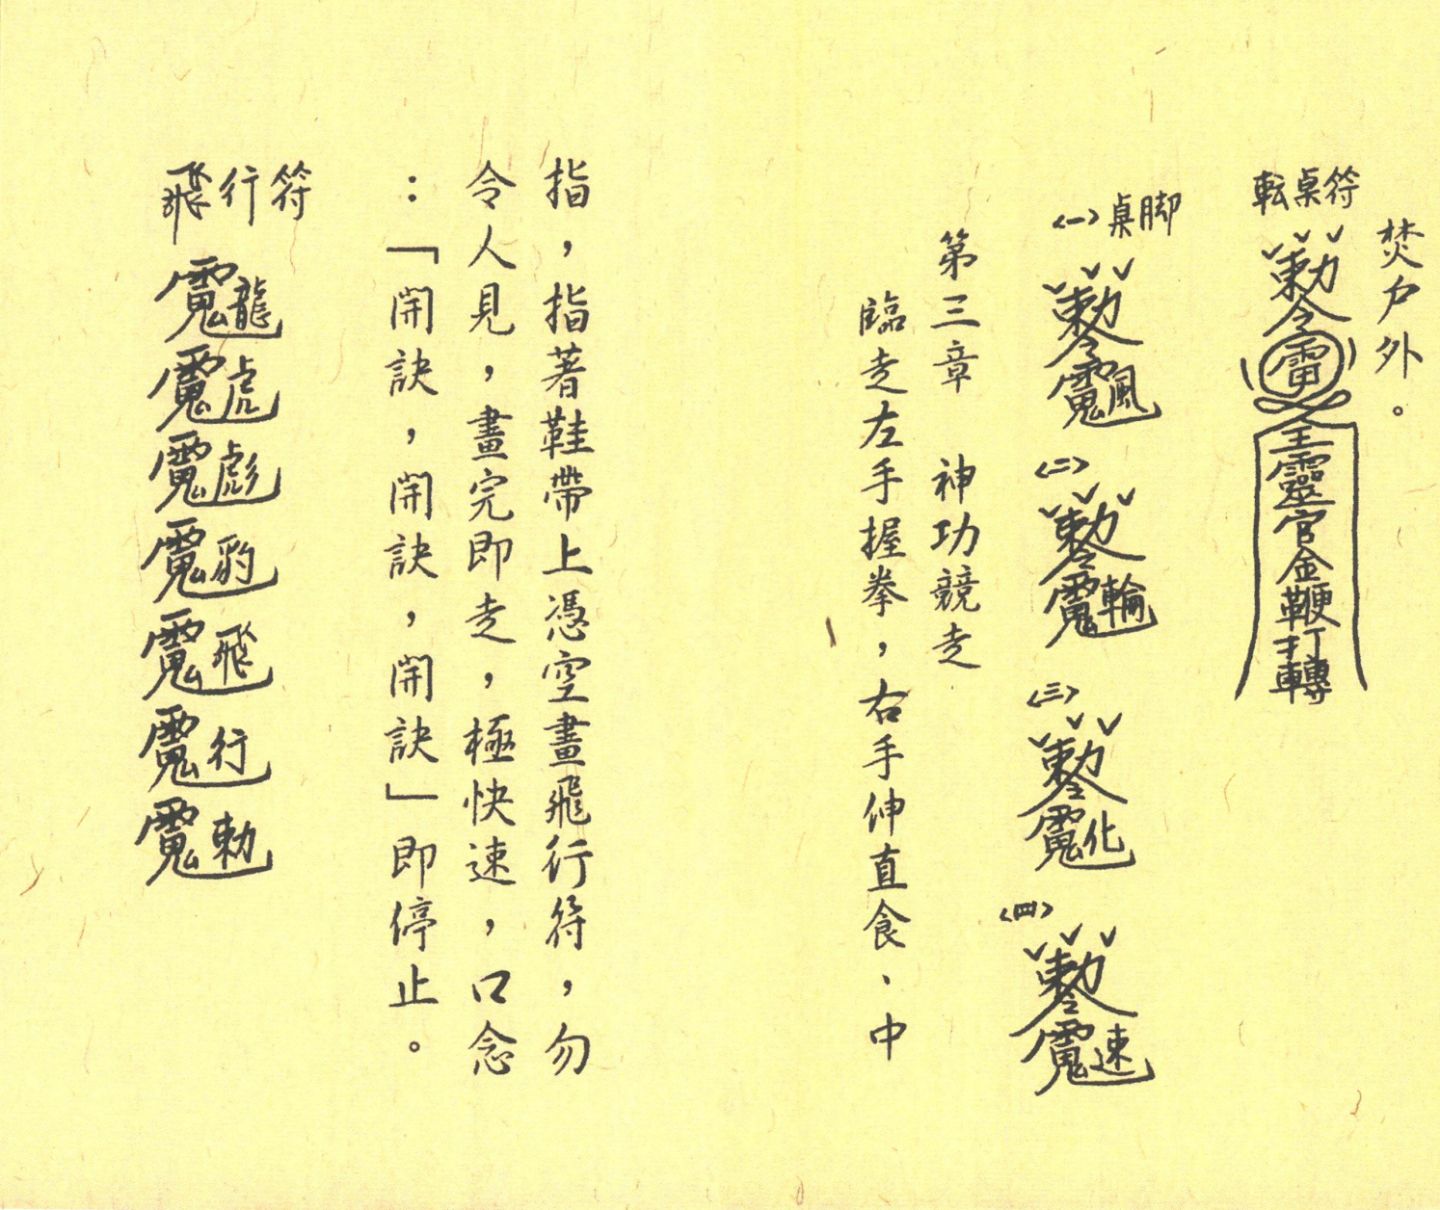 焚户外。
転桌符
勅令雷
王靈官金鞭打轉
<一>桌脚
勅令 風
<二>
勅令 輪
<三>
勅令 化
<四>
勅令 速
第三章 神功競走
臨走左手握拳，右手伸直食、中
指，指著鞋帶上憑空畫飛行符，勿
令人見，畫完即走，極快速，口念
：「開訣，開訣，開訣」即停止。
飛行符
龍
虎
彪
豹
飛
行
勅